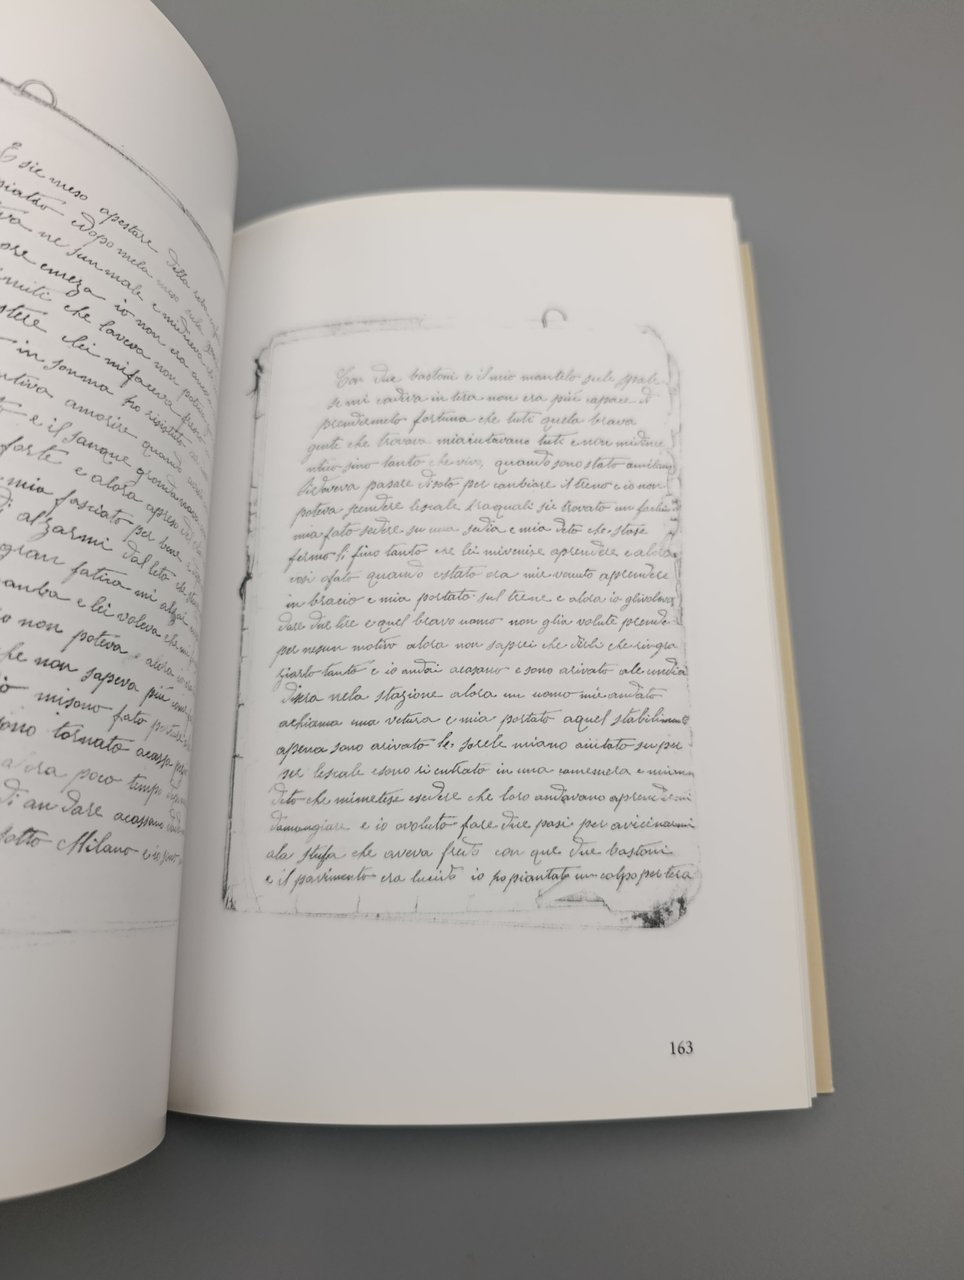 E sie meso apestare della
siatro edopo mela meso sula
va ne sun male e midieva
ore emeza io non era
imiti che laveva non poteva
stere lei mifaceva
in sonma ho resistito
ntiva amorire quando
e il sangue grondava
forte e alora apreso
mia fasciato per bene
di alzarmi dal leto che
gran fatica mi alzai
anba e lei voleva che
io non poteva e alora
he non sapeva più
io misono fato
sono tornato acasa
alora poco tempo
di andare acassano
sotto Milano e io sono
Con due bastoni e il mio mantelo sule spale
se mi cadiva in tera non era piú capace di
prendirmelo fortuna che tuti quela brava
gente che trovava miaiutavano tuti e non midime
ntico sino tanto che vivo, quando sono stato amilano
lidoveva pasare disoto per canbiare il treno e io non
poteva scendere lescale traquali sie trovato un fachin
mia fato sedere su una sedia e mia deto che stase
fermo li fino tanto che lei mivenise aprendere e alora
cosi ofato quando e stato ora mie venuto aprendere
in bracio e mia portato sul treno e alora io glivoleva
dare due lire e quel bravo uomo non glia volute prende
per nesun motivo alora non saprei che dirli che ringra
ziarlo tanto e io andai acasano e sono arivato ale undici
disera nela stazione alora un uomo mie andato
achiama una vetura e mia portato aquel stabilimento
apena sono arivato le sorele miano aiutato su per
per lescale e sono si entrato in una camemera e miano
deto che mimetese esedere che loro andavano aprendermi
damangiare e io ovoluto fare due pasi per avicinarmi
ala stufa che aveva fredo con que due bastoni
e il pavimento era lucido io ho piantato un colpo per tera
163